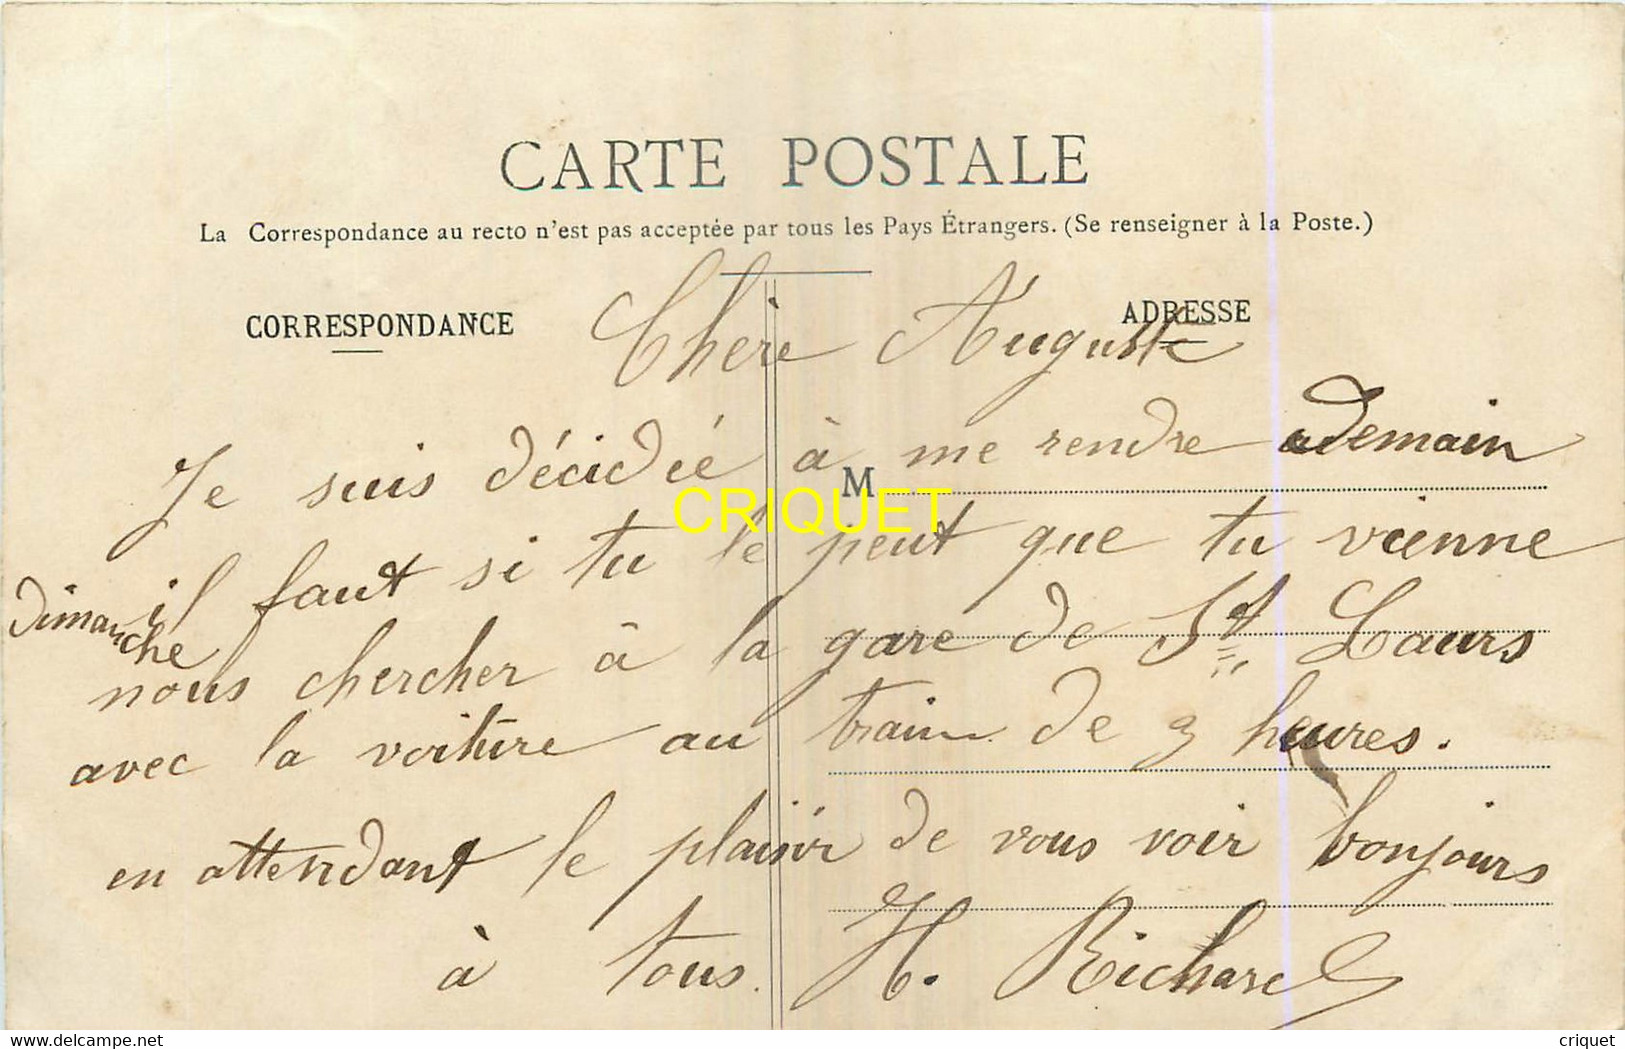 CARTE POSTALE
La Correspondance au recto n'est pas acceptée par tous les Pays Étrangers. (Se renseigner à la Poste.)
CORRESPONDANCE
ADRESSE
Chère Auguste
Je suis décidée à me rendre demain
M
CRIQUET
Dimanche
il faut si tu le peut que tu vienne
nous chercher à la gare de St Laurs
avec la voiture au train de 3 heures.
en attendant le plaisir de vous voir bonjours
à tous. H. Richard
delcampe.net
criquet